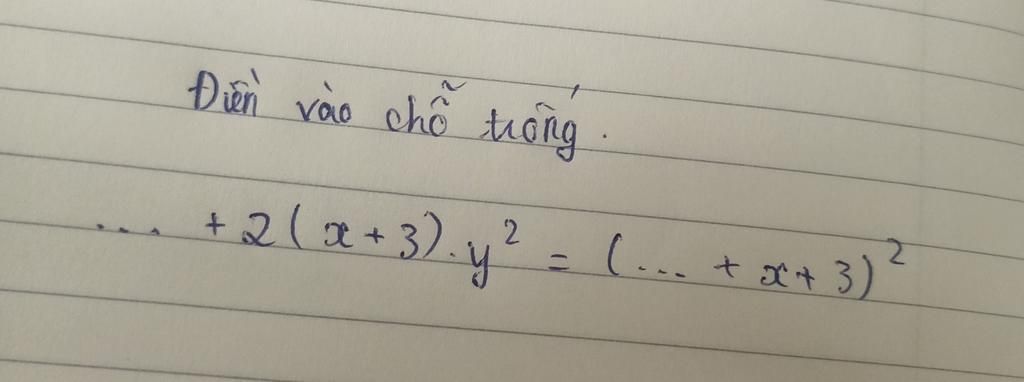 Điền vào chỗ trống.
.... + 2(x+3).y² = (... + x+3)²